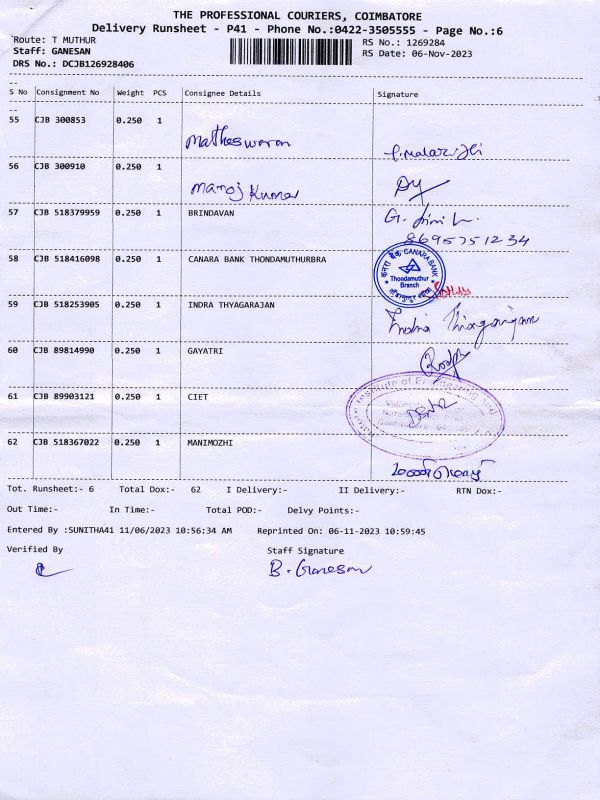 THE PROFESSIONAL COURIERS, COIMBATORE
Delivery Runsheet - P41 - Phone No.:0422-3505555 - Page No.:6
Route: T MUTHUR RS No.: 1269284
Staff: GANESAN RS Date: 06-Nov-2023
DRS No.: DCJB126928406
S No Consignment No Weight PCS Consignee Details Signature
55 CJB 300853 0.250 1
Matheswaran
56 CJB 300910 0.250 1
Manoj Kumar
57 CJB 518379959 0.250 1 BRINDAVAN
8695751234
58 CJB 518416098 0.250 1 CANARA BANK THONDAMUTHURBRA
केनरा बैंक CANARA BANK
Thondamuthur
Branch
59 CJB 518253905 0.250 1 INDRA THYAGARAJAN
Indra
60 CJB 89814990 0.250 1 GAYATRI
61 CJB 89903121 0.250 1 CIET
Institute of Engineering and
62 CJB 518367022 0.250 1 MANIMOZHI
Tot. Runsheet:- 6 Total Dox:- 62 I Delivery:- II Delivery:- RTN Dox:-
Out Time:- In Time:- Total POD:- Delvy Points:-
Entered By :SUNITHA41 11/06/2023 10:56:34 AM Reprinted On: 06-11-2023 10:59:45
Verified By Staff Signature
B. Ganesan